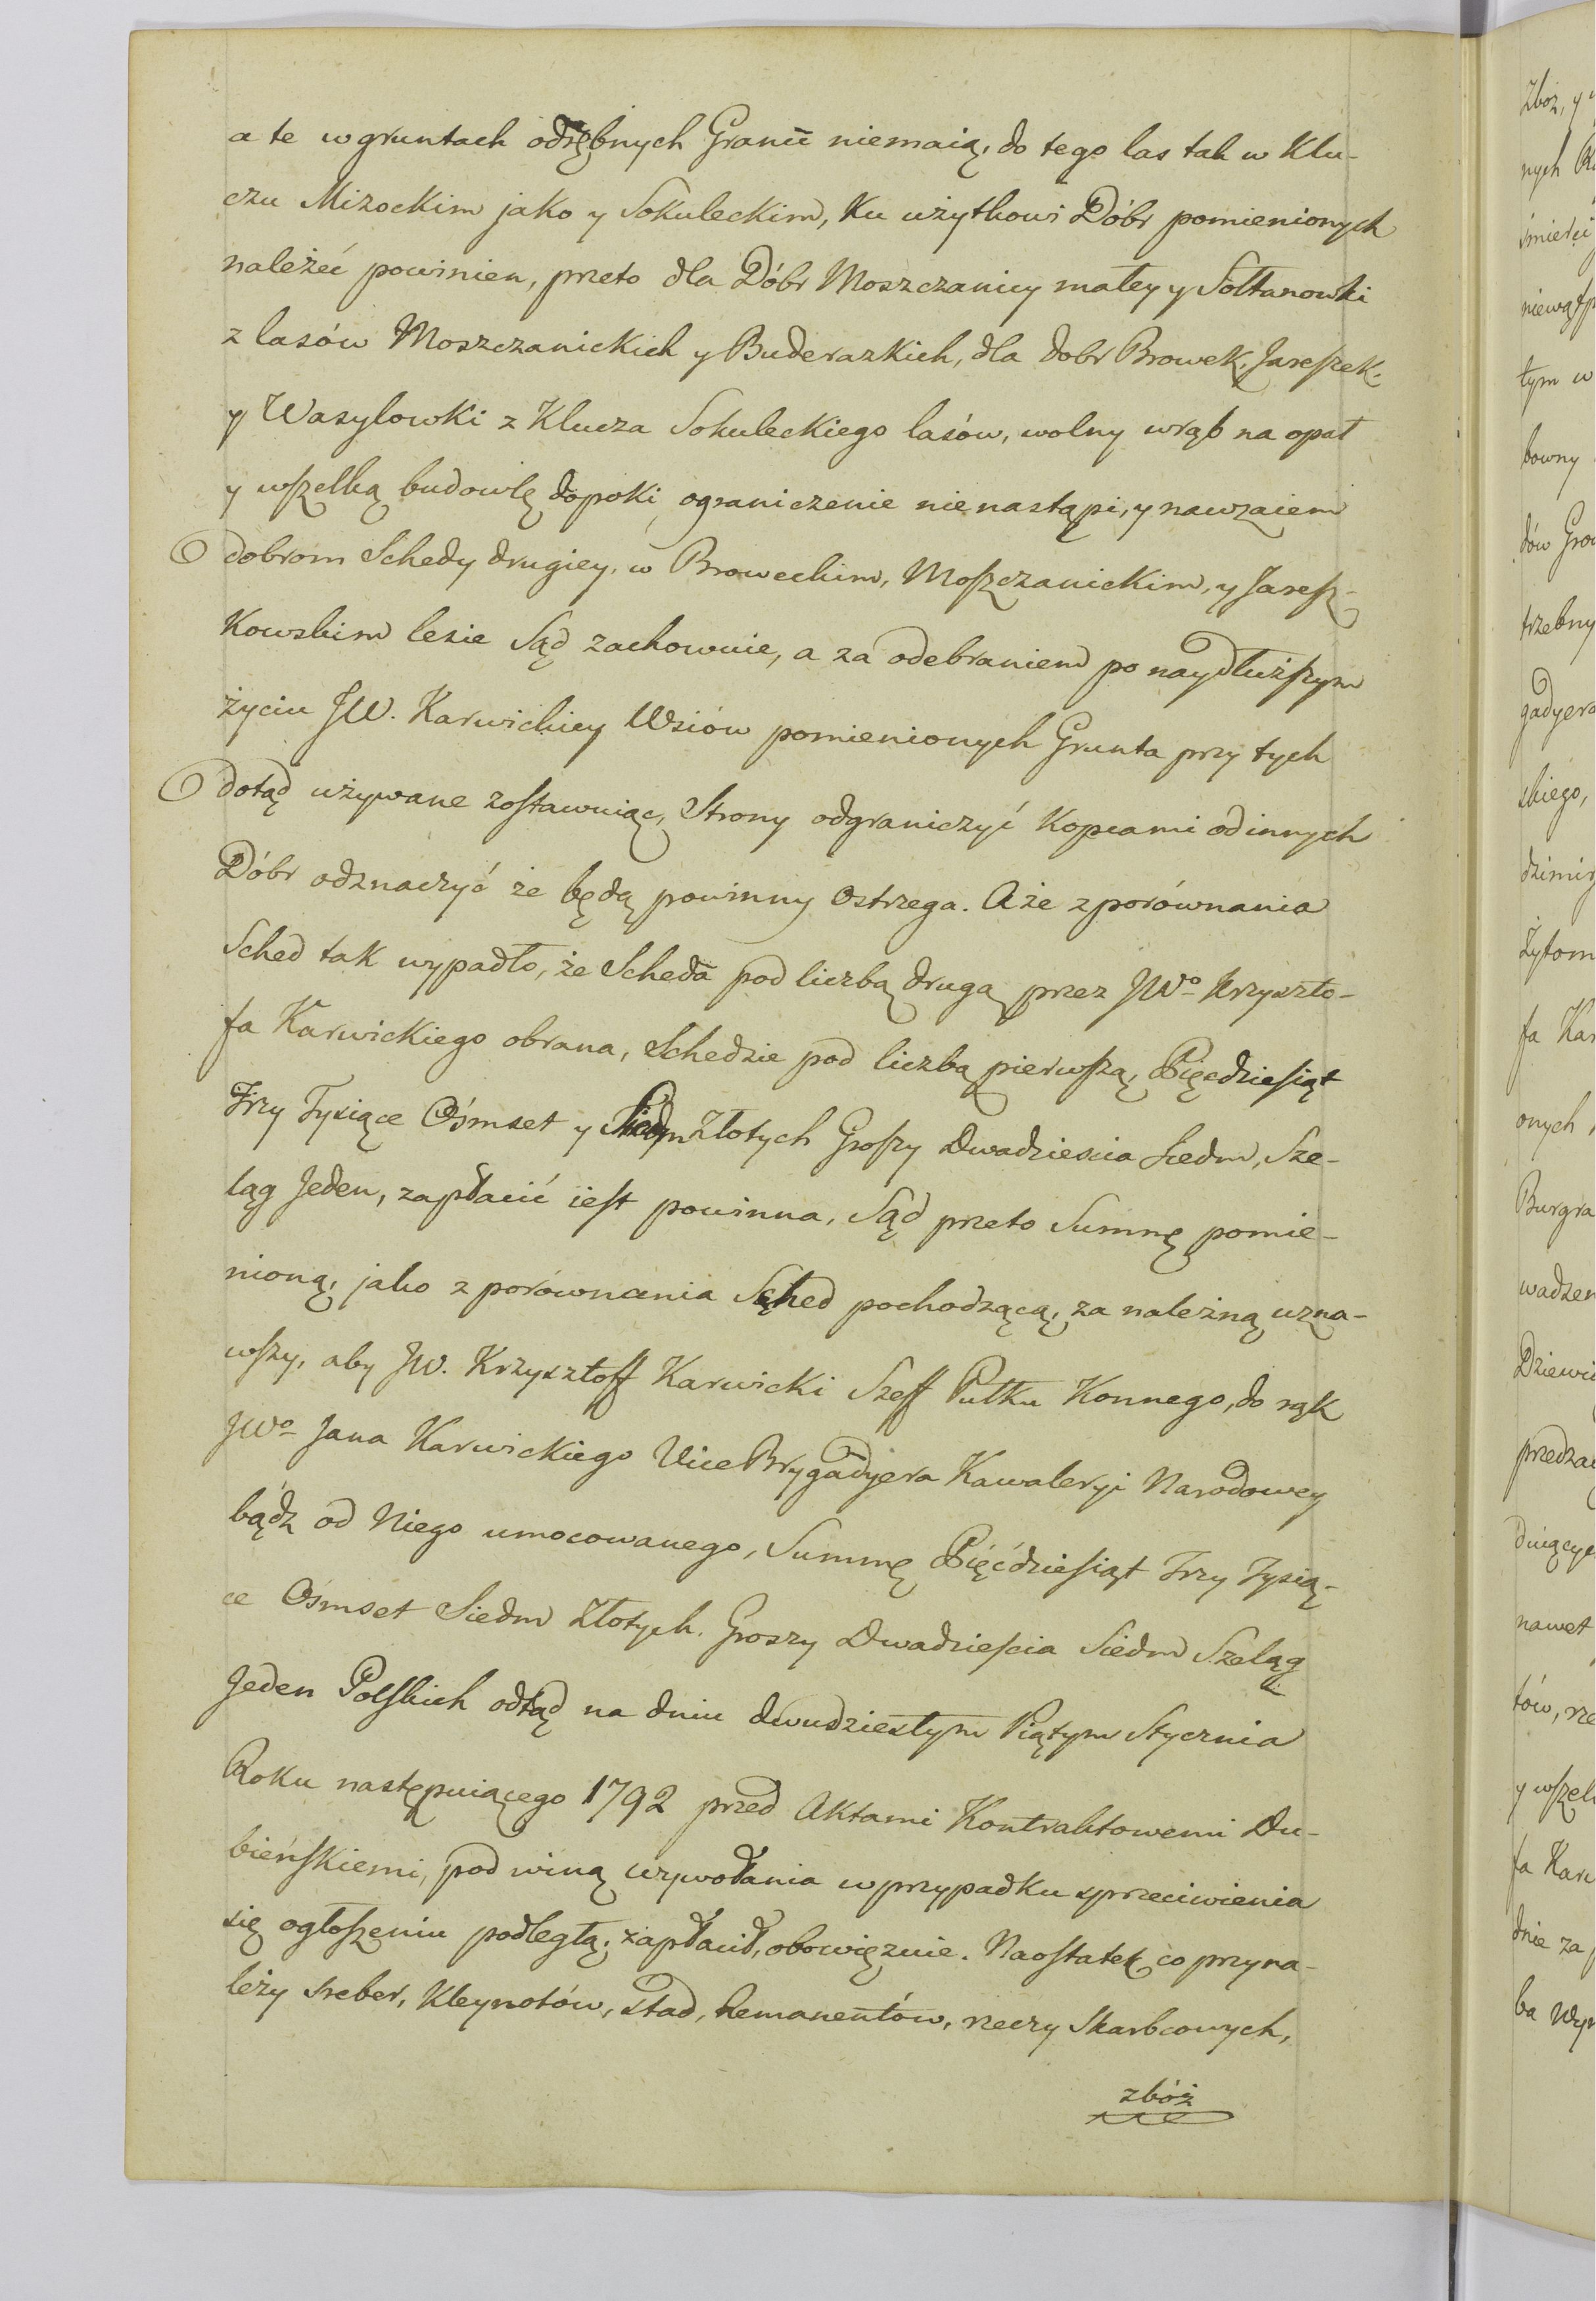 a te w gruntach odrębnych Granic niemaią, do tego las tak w Klu-
czu Mizockim jako y Sokuleckim, Ku użytkowi Dóbr pomienionych
należéć powinien, przeto dla Dóbr Moszczanicy małey y Sołtanowki
z lasów Moszczanickich y Buderazkich, dla dobr Browek, Jareszek
y Wasylowki z Klucza Sokuleckiego lasów, wolny wrąb na opał
y wszelką budowlę dopoki ograniczenie nie nastąpi, y nawzaiem
dobrom Schedy drugiey, w Broweckim, Moszczanickim, y Jaresz-
kowskim lesie Sąd zachowuie, a za odebraniem po naydłuższym
życiu JW. Karwickiey Wsiów pomienionych Grunta przy tych
dotąd używane zostawuiąc, Strony odgraniczyć Kopcami od innych
Dóbr odznaczyć że będą powinny ostrzega. A że z porównania
Sched tak wypadło, że Scheda pod liczbą drugą przez JWo Krzyszto-
fa Karwickiego obrana, Schedzie pod liczbą pierwszą, Pięcdziesiąt
Trzy Tysiące Ośmset y Siedm Złotych Groszy Dwadziescia Siedm, Sze-
ląg Jeden, zapłacić iest powinna, Sąd przeto Summę pomie-
nioną, jako z porównania Sched pochodzącą, za należną uzna-
wszy, aby JW. Krzysztoff Karwicki Szeff Pułku Konnego, do rąk
JWo Jana Karwickiego Vice Brygadyera Kawaleryi Narodowey
bądz od Niego umocowanego, Summę Pięćdziesiąt Trzy Tysią-
ce Ośmset Siedm Złotych. Groszy Dwadziescia Siedm Szeląg
Jeden Polskich odtąd na dniu dwudziestym Piątym Stycznia
Roku następuiącego 1792 przed Aktami Kontraktowemi Du-
bieńskiemi, pod winą wywołania w przypadku sprzeciwienia
się ogłoszeniu podległą, zapłacił, obowięzuie. Naostatek co przyna-
leży sreber, Kleynotów, stad, Remanentów, rzeczy Skarbcowych,
zbóż
Zboż, y
nych
śmierci
niewątp
tym w
bowny
dów Gro
trzebny
gadyera
skiego,
dzimir
Żytom
fa Kar
onych
Burgra
wadzen
Dziewię
przedza
duiącye
nawet
tów, rze
y wszel
fa Karw
dnie za
ba wyn